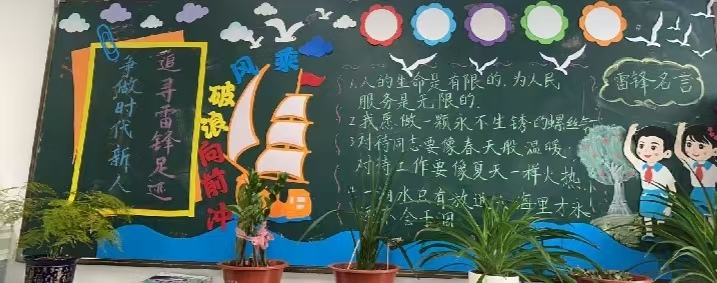 追寻雷锋足迹
争做时代新人
乘风
破浪向前冲
雷锋名言
1.人的生命是有限的.为人民
服务是无限的.
2我愿做一颗永不生锈的螺丝
3对待同志要像春天般温暖
对待工作要像夏天一样火热
水只有放进 海里才永
会干涸